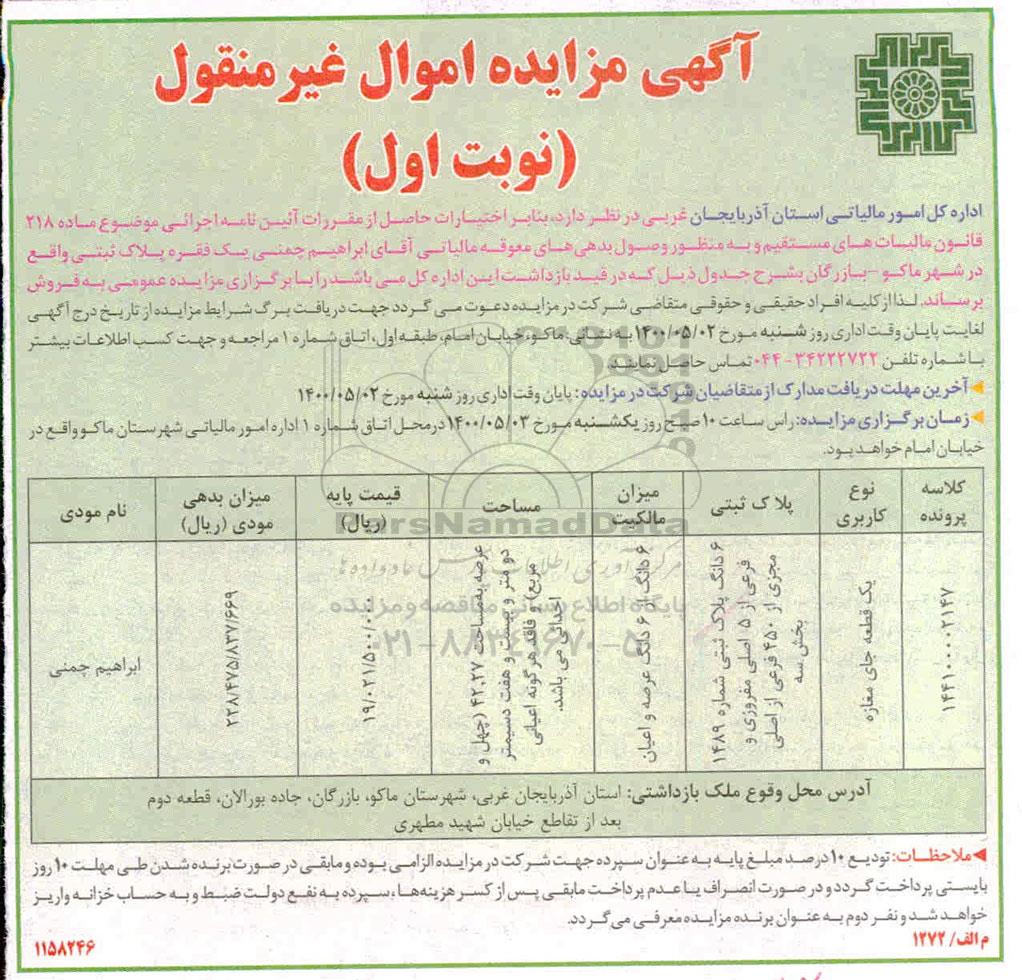 آگهی مزایده اموال غیرمنقول
(نوبت اول)
اداره کل امور مالیاتی استان آذربایجان غربی در نظر دارد، بنابر اختیارات حاصل از مقررات آئین نامه اجرائی موضوع ماده ۲۱۸
قانون مالیات های مستقیم و به منظور وصول بدهی های معوقه مالیاتی آقای ابراهیم چمنی یک فقره پلاک ثبتی واقع
در شهر ماکو - بازرگان بشرح جدول ذیل که در قید بازداشت این اداره کل می باشد را با برگزاری مزایده عمومی به فروش
برساند. لذا از کلیه افراد حقیقی و حقوقی متقاضی شرکت در مزایده دعوت می گردد جهت دریافت برگ شرایط مزایده از تاریخ درج آگهی
لغایت پایان وقت اداری روز شنبه مورخ ۱۴۰۰/۰۵/۰۲ به نشانی: ماکو، خیابان امام، طبقه اول، اتاق شماره ۱ مراجعه و جهت کسب اطلاعات بیشتر
با شماره تلفن ۳۴۲۲۲۷۲۲-۰۴۴ تماس حاصل نمایند.
آخرین مهلت دریافت مدارک از متقاضیان شرکت در مزایده: پایان وقت اداری روز شنبه مورخ ۱۴۰۰/۰۵/۰۲
زمان برگزاری مزایده: راس ساعت ۱۰ صبح روز یکشنبه مورخ ۱۴۰۰/۰۵/۰۳ در محل اتاق شماره ۱ اداره امور مالیاتی شهرستان ماکو واقع در
خیابان امام خواهد بود.
کلاسه پرونده
نوع کاربری
پلاک ثبتی
میزان مالکیت
مساحت
قیمت پایه (ریال)
میزان بدهی مودی (ریال)
نام مودی
۱۴۴۱۰۰۰۰۲۱۴۷
یک قطعه جای مغازه
۶ دانگ پلاک ثبتی شماره ۱۴۸۹
فرعی از ۵ اصلی مفروزی و
مجزی از ۴۵۰ فرعی از اصلی
بخش سه
۶ دانگ از ۶ دانگ عرصه و اعیان
عرصه به مساحت ۴۲.۲۷ (چهل و
دو متر و بیست و هفت دسیمتر
مربع) و فاقد هرگونه اعیانی
احداثی می باشد.
۱۹/۰۲۱/۵۰۰/۰۰۰
۲۲۸/۴۷۵/۸۳۷/۶۶۹
ابراهیم چمنی
آدرس محل وقوع ملک بازداشتی: استان آذربایجان غربی، شهرستان ماکو، بازرگان، جاده بورالان، قطعه دوم
بعد از تقاطع خیابان شهید مطهری
ملاحظات: تودیع ۱۰ درصد مبلغ پایه به عنوان سپرده جهت شرکت در مزایده الزامی بوده و مابقی در صورت برنده شدن طی مهلت ۱۰ روز
بایستی پرداخت گردد و در صورت انصراف یا عدم پرداخت مابقی پس از کسر هزینه ها، سپرده به نفع دولت ضبط و به حساب خزانه واریز
خواهد شد و نفر دوم به عنوان برنده مزایده معرفی می گردد.
م الف/ ۱۲۷۲
۱۱۵۸۲۴۶
ParsNamadData
پایگاه اطلاع رسانی مناقصه و مزایده
۰۲۱-۸۸۳۴۹۶۷۰-۵